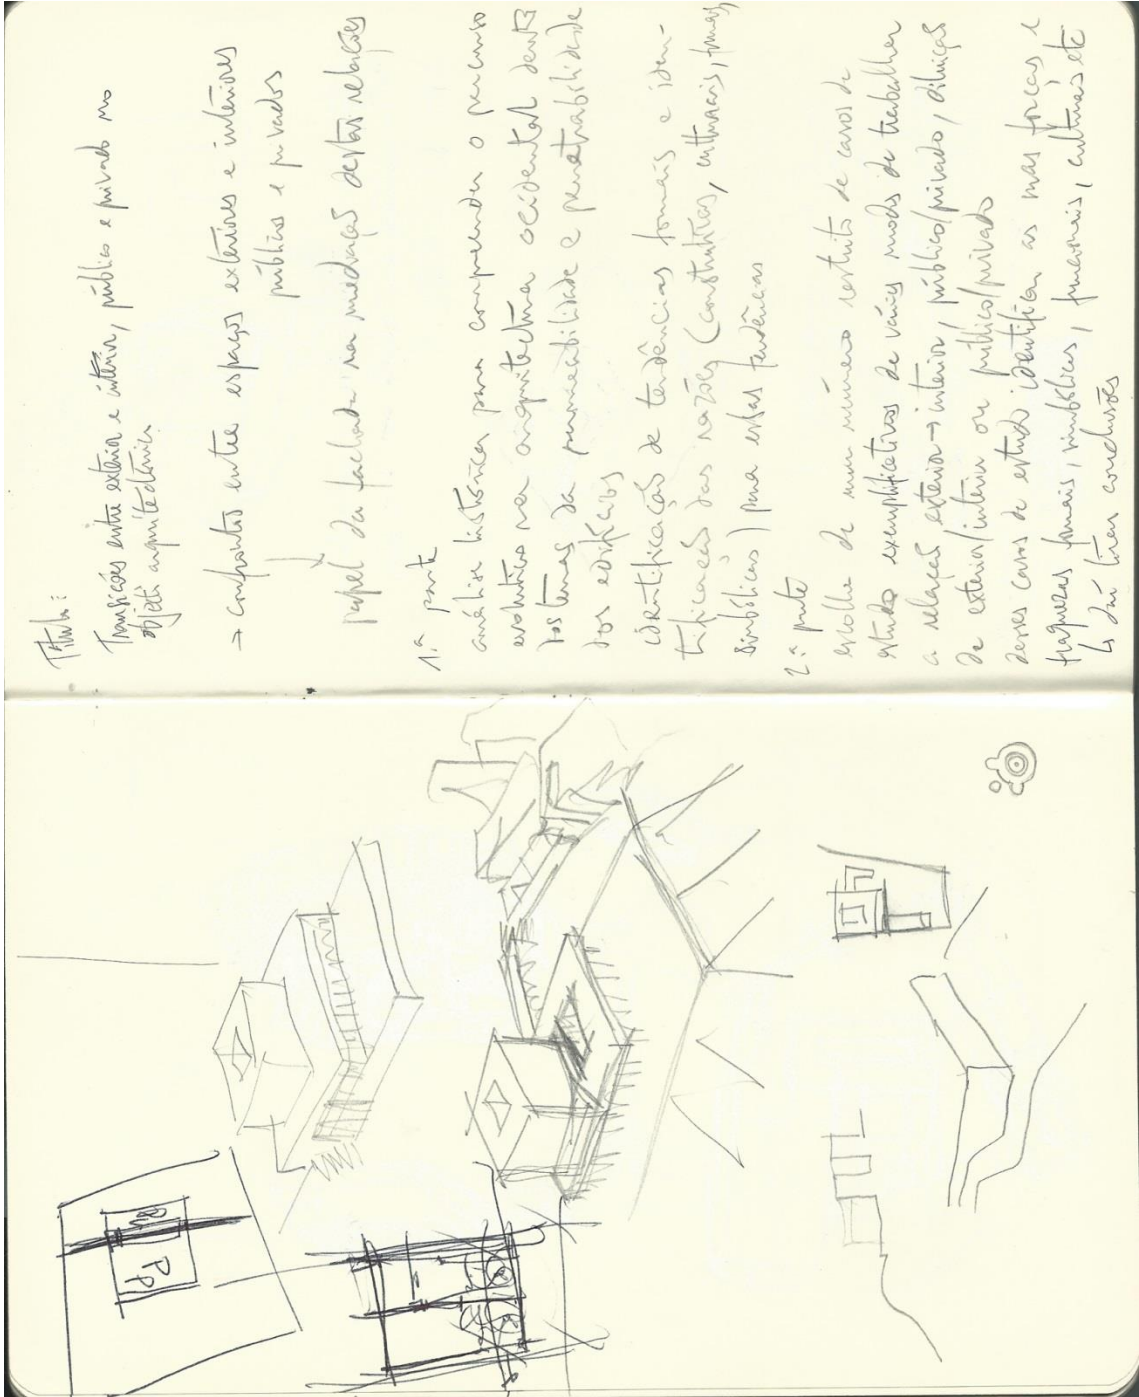 Título:
Transições entre exterior e interior, público e privado no
objeto arquitectónico
→ confrontos entre espaços exteriores e interiores
públicos e privados
↓
papel da fachada na mediação destas relações
1.ª parte
análise histórica para compreender o percurso
evolutivo na arquitectura ocidental dentro
dos temas da permeabilidade e penetrabilidade
dos edifícios
identificação de tendências formais e iden-
tificação das razões (construtivas, culturais, formais,
simbólicas) para estas tendências
2.ª parte
escolha de um número restrito de casos de
estudo exemplificativos de vários modos de trabalhar
a relação exterior → interior, público/privado, diluição
de exterior/interior ou público/privado
desses casos de estudo identificar as suas forças e
fraquezas formais, simbólicas, funcionais, culturais etc
↳ daí tirar conclusões
PP